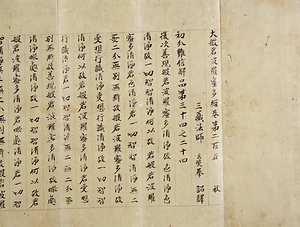 大般若波羅蜜多經卷第二百五 秋
三藏法師玄奘奉 詔譯
初分難信解品第三十四之二十四
復次善現般若波羅蜜多清淨故色清淨色
清淨故一切智智清淨何以故若般若波羅
蜜多清淨若色清淨若一切智智清淨無二
無二分無別無斷故般若波羅蜜多清淨故
受想行識清淨受想行識清淨故一切智智
清淨何以故若般若波羅蜜多清淨若受想
行識清淨若一切智智清淨無二無二分無
別無斷故善現般若波羅蜜多清淨故眼處
清淨眼處清淨故一切智智清淨何以故若
般若波羅蜜多清淨若眼處清淨若一切智
智清淨無二無二分無別無斷故般若波羅